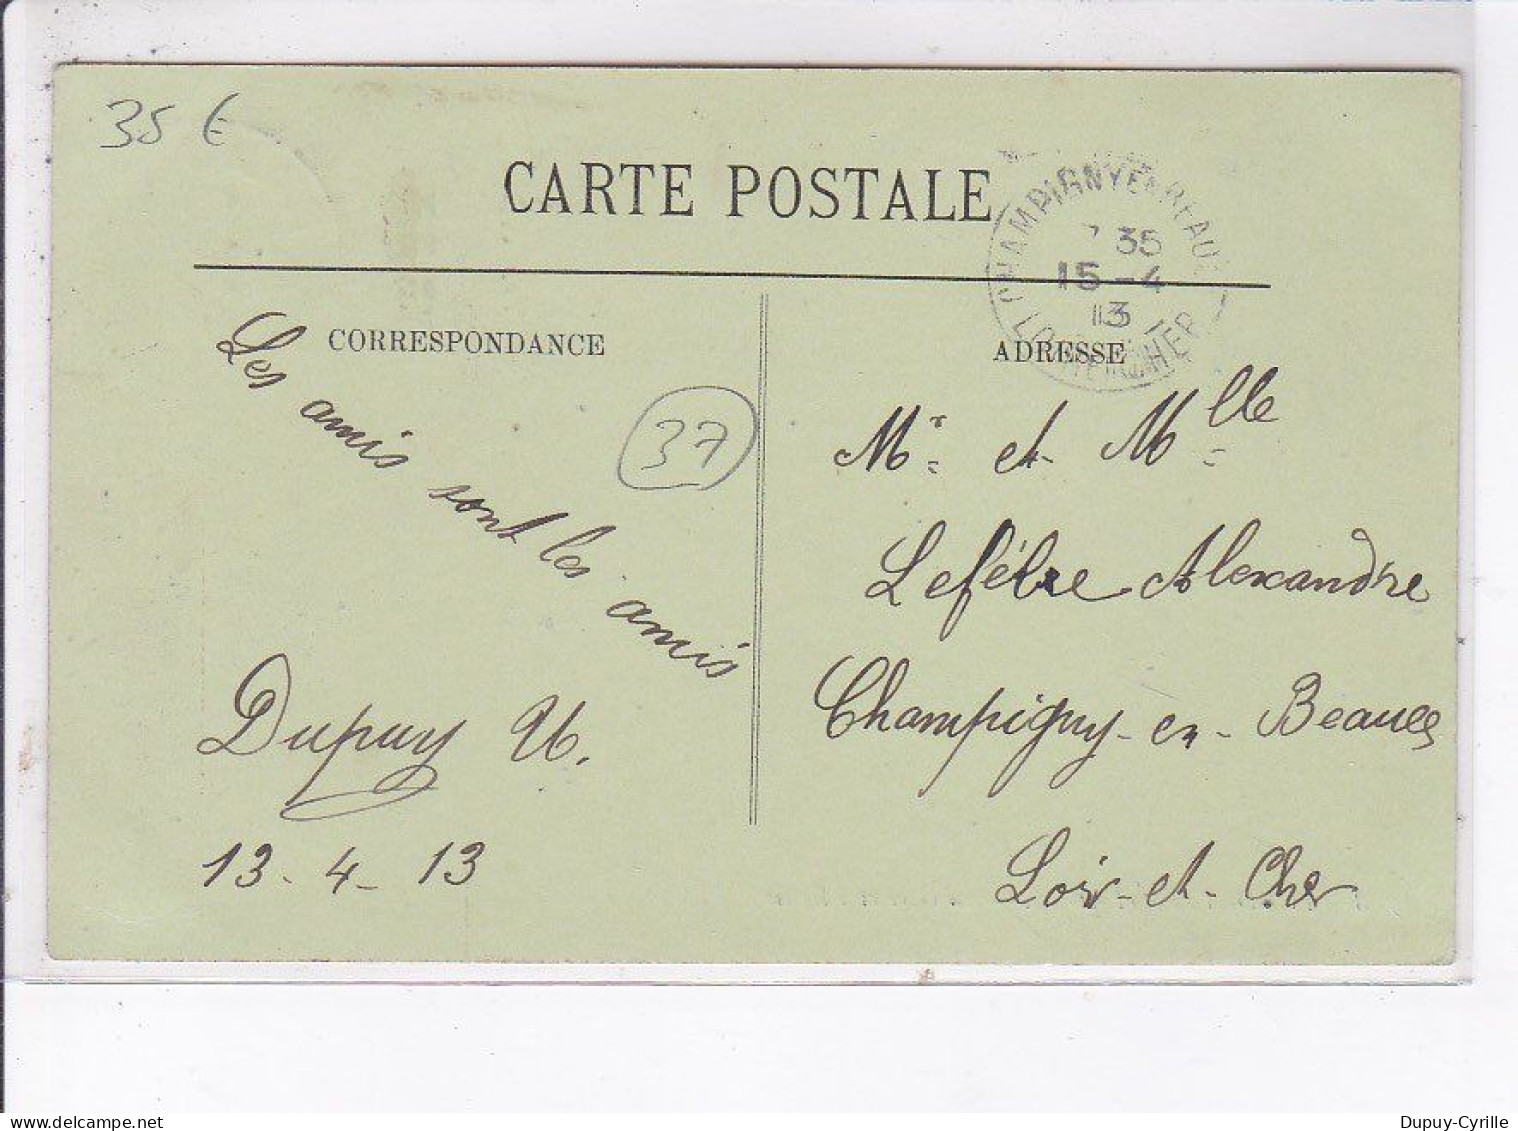 35 €
CARTE POSTALE
CHAMPIGNY EN BEAUCE
7 35
15 - 4
13
LOIR ET CHER
CORRESPONDANCE
ADRESSE
Les amis sont les amis
37
Dupuy U.
13 - 4 - 13
Mr et Mlle
Lefébre Alexandre
Champigny-en-Beauce
Loir-et-Cher
delcampe.net
Dupuy-Cyrille